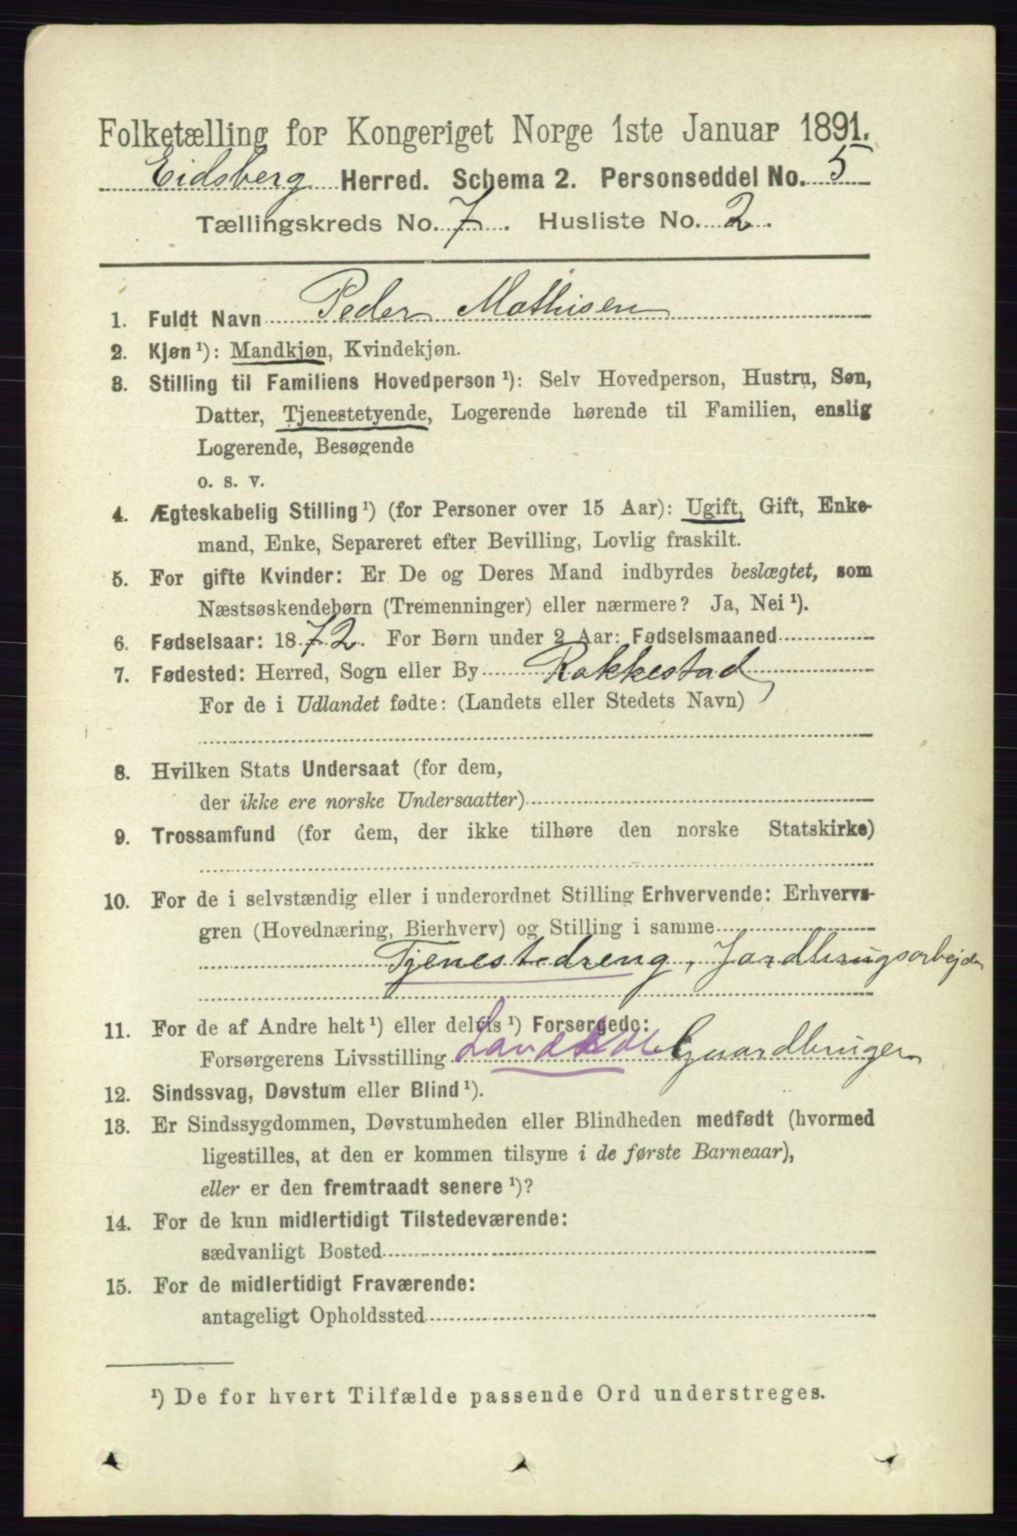 Folketælling for Kongeriget Norge 1ste Januar 1891.
Eidsberg Herred. Schema 2. Personseddel No. 5
Tællingskreds No. 7. Husliste No. 2.
1. Fuldt Navn Peder Mathisen
2. Kjøn ¹): Mandkjøn, Kvindekjøn.
3. Stilling til Familiens Hovedperson ¹): Selv Hovedperson, Hustru, Søn,
Datter, Tjenestetyende, Logerende hørende til Familien, enslig
Logerende, Besøgende
o. s. v.
4. Ægteskabelig Stilling ¹) (for Personer over 15 Aar): Ugift, Gift, Enke-
mand, Enke, Separeret efter Bevilling, Lovlig fraskilt.
5. For gifte Kvinder: Er De og Deres Mand indbyrdes beslægtet, som
Næstsøskendebørn (Tremenninger) eller nærmere? Ja, Nei ¹).
6. Fødselsaar: 1872. For Børn under 2 Aar: Fødselsmaaned
7. Fødested: Herred, Sogn eller By Rakkestad
For de i Udlandet fødte: (Landets eller Stedets Navn)
8. Hvilken Stats Undersaat (for dem,
der ikke ere norske Undersaatter)
9. Trossamfund (for dem, der ikke tilhøre den norske Statskirke)
10. For de i selvstændig eller i underordnet Stilling Erhvervende: Erhvervs-
gren (Hovednæring, Bierhverv) og Stilling i samme
Tjenestedreng, Jordbrugsarbejde
11. For de af Andre helt ¹) eller delvis ¹) Forsørgede:
Forsørgerens Livsstilling Gaardbruger
12. Sindssvag, Døvstum eller Blind ¹).
13. Er Sindssygdommen, Døvstumheden eller Blindheden medfødt (hvormed
ligestilles, at den er kommen tilsyne i de første Barneaar),
eller er den fremtraadt senere ¹)?
14. For de kun midlertidigt Tilstedeværende:
sædvanligt Bosted
15. For de midlertidigt Fraværende:
antageligt Opholdssted
¹) De for hvert Tilfælde passende Ord understreges.